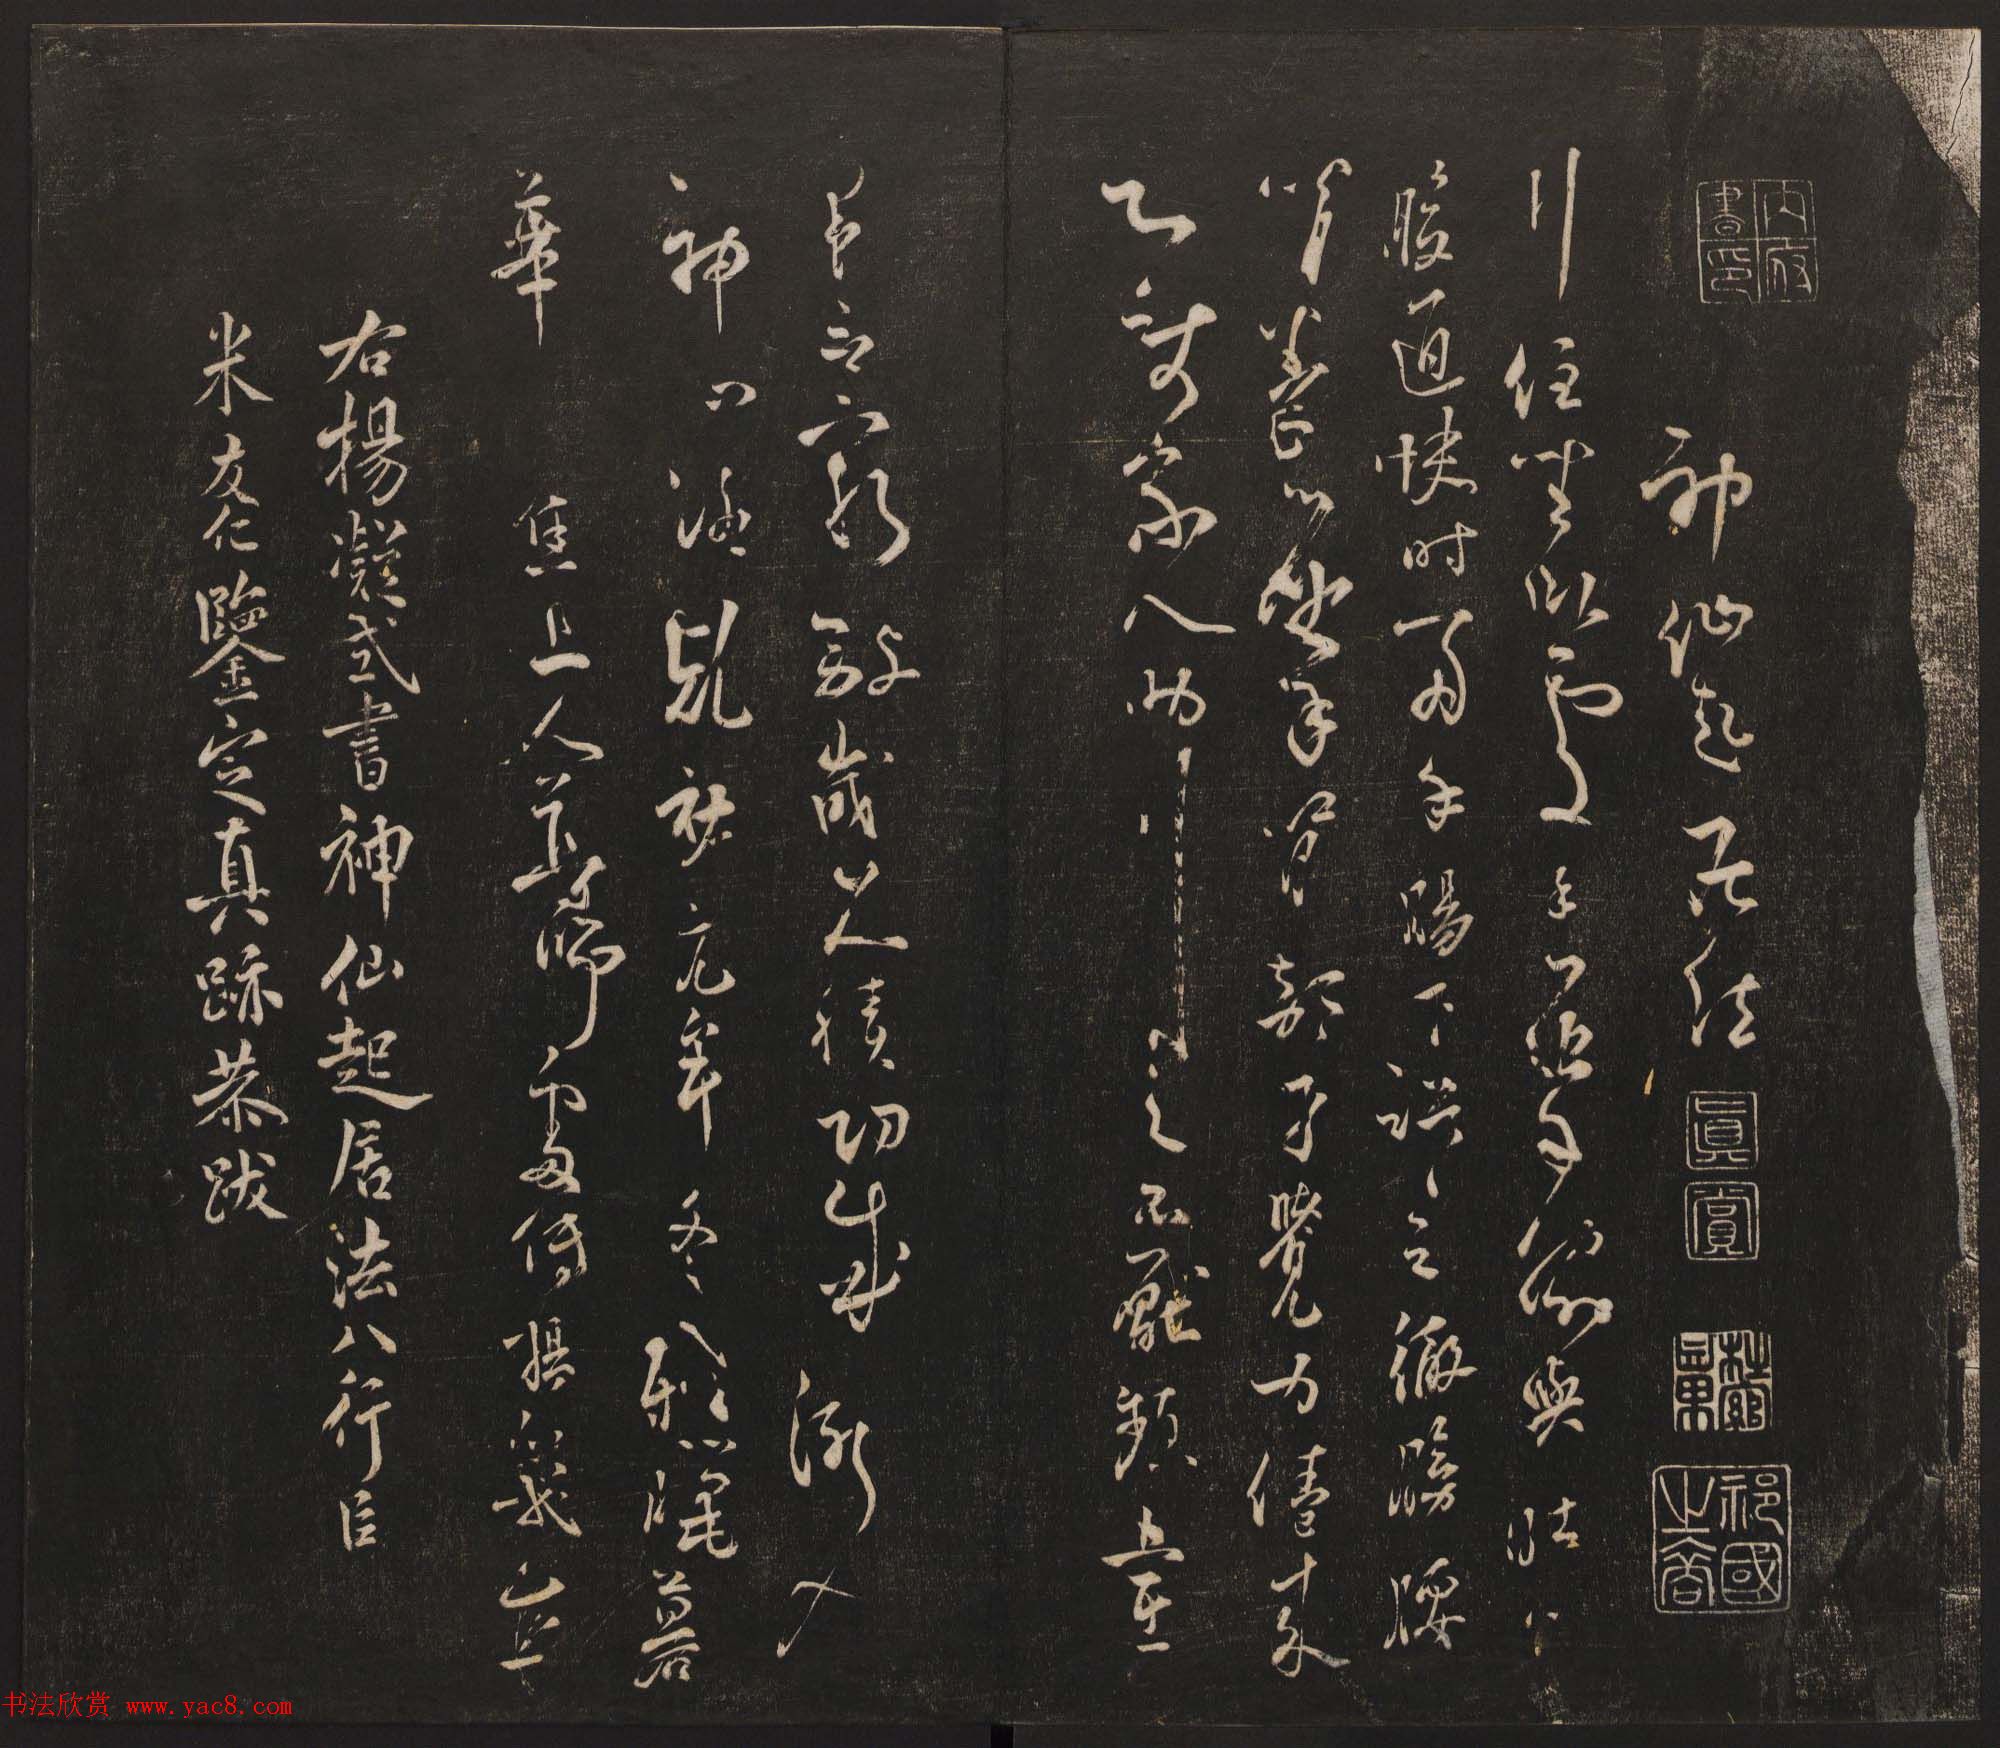 內府書印
神仙起居法
真賞
行住坐臥處手摩脅與肚心
腹通快時兩手腸下踞踞之徹膀腰
背拳摩腎部才覺力倦來
即使家人助行之不厭頻晝
夜無窮數歲久積功成漸入
神仙路乾祐元年冬殘臘暮
華陽焦上人尊師處傳楊凝式
右楊凝式書神仙起居法八行臣
米友仁鑒定真跡恭跋
书法欣赏 www.yac8.com